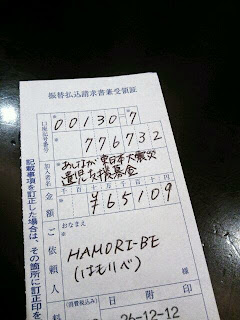 振替払込請求書兼受領証
口座記号番号
00130 7
776732
加入者名
あしなが東日本大震災
遺児支援募金
金額
千 百 十 万 千 百 十 円
¥65109
ご依頼人
おなまえ
HAMORI-BE
(はもりべ)
様
料
(消費税込み)
日附印
26-12-12
記載事項を訂正した場合は、その箇所に訂正印を